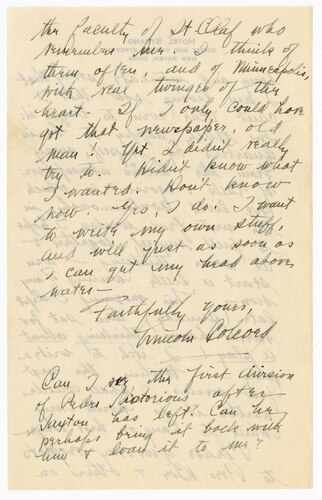 the faculty of St Olaf who
remembers me. I think of
them often, and of Minneapolis,
with real twinges of the
heart. If I only could have
got that newspaper, old
man! Yet I didn't really
try to. Didn't know what
I wanted. Don't know
now. Yes, I do. I want
to write my own stuff,
and will just as soon as
I can get my head above
water—
Faithfully yours,
Lincoln Colcord
Can I see the first division
of Peder Victorious after
Saxton has left? Can he
perhaps bring it back with
him & loan it to me?